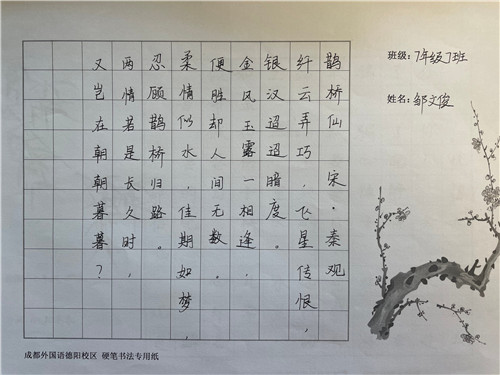 鹊桥仙 宋·秦观
纤云弄巧,飞星传恨,
银汉迢迢暗度。
金风玉露一相逢,
便胜却人间无数。
柔情似水,佳期如梦,
忍顾鹊桥归路。
两情若是长久时,
又岂在朝朝暮暮?
班级:7年级7班
姓名:邹文俊
成都外国语德阳校区 硬笔书法专用纸